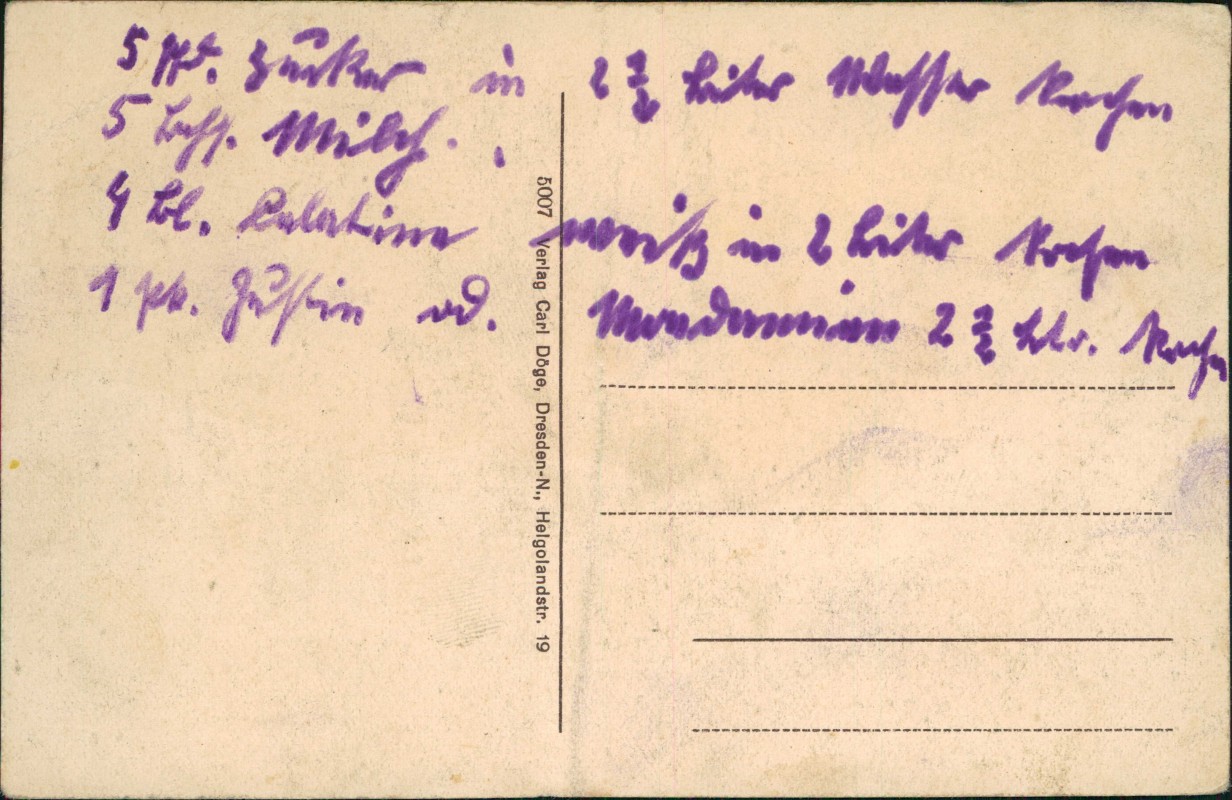 5 Pfd. Zucker in 2 1/2 Liter Wasser Kochen
5 Milch.
4 Bl. Gelatine weiß in 2 Liter Kochen
1 Pk. Gustin od. Mondamin 2 1/2 Ltr. Kochen
5007 Verlag Carl Döge, Dresden-N., Helgolandstr. 19